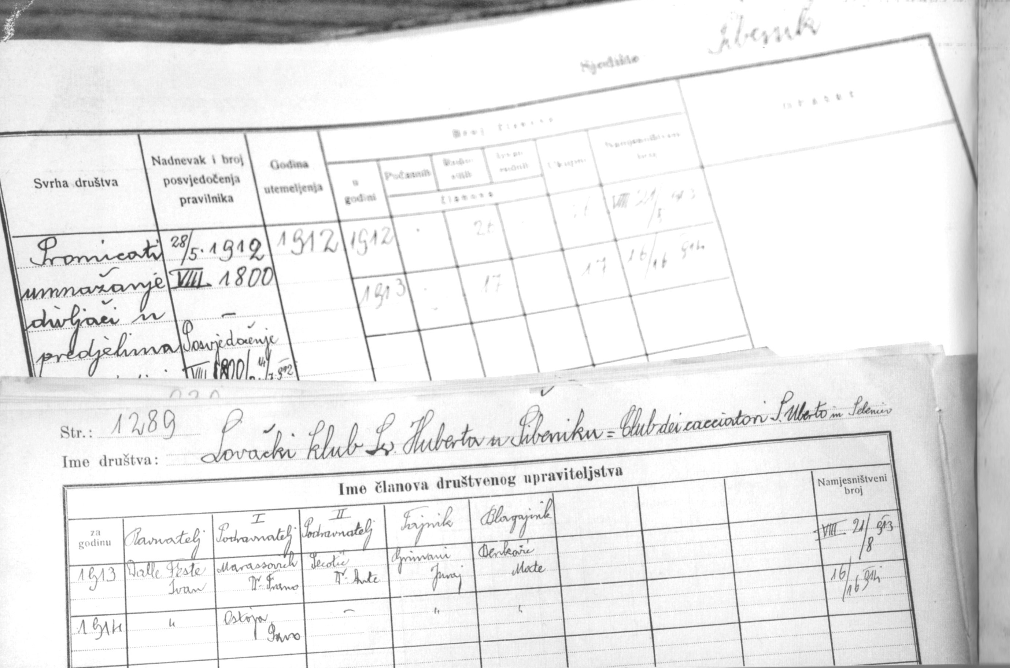 Šibenik
Sjedište
Svrha društva
Nadnevak i broj
posvjedočenja
pravilnika
Godina
utemeljenja
Broj članova
u
godini
Počasnih
Ukupno
članova
Opaske
Promicati
umnažanje
divljači u
predjelima
28/5. 1912
VIII 1800
Posvjedočenje
1912
1912
VIII 21/8 913
1913
17
17
16/16 914
Str.: 1289
Ime društva: Lovački klub Sv. Huberta u Šibeniku = Club dei cacciatori S. Uberto in Sebenico
Ime članova društvenog upraviteljstva
za
godinu
Ravnatelj
I
Podravnatelj
II
Podravnatelj
Tajnik
Blagajnik
Namjesništveni
broj
1913
Dalle Feste
Ivan
Marassovich
Dr. Frano
Dr. Ante
Grimani
Juraj
Mate
VIII 21/8 913
1914
"
Ostoja
–
"
"
16/16 914